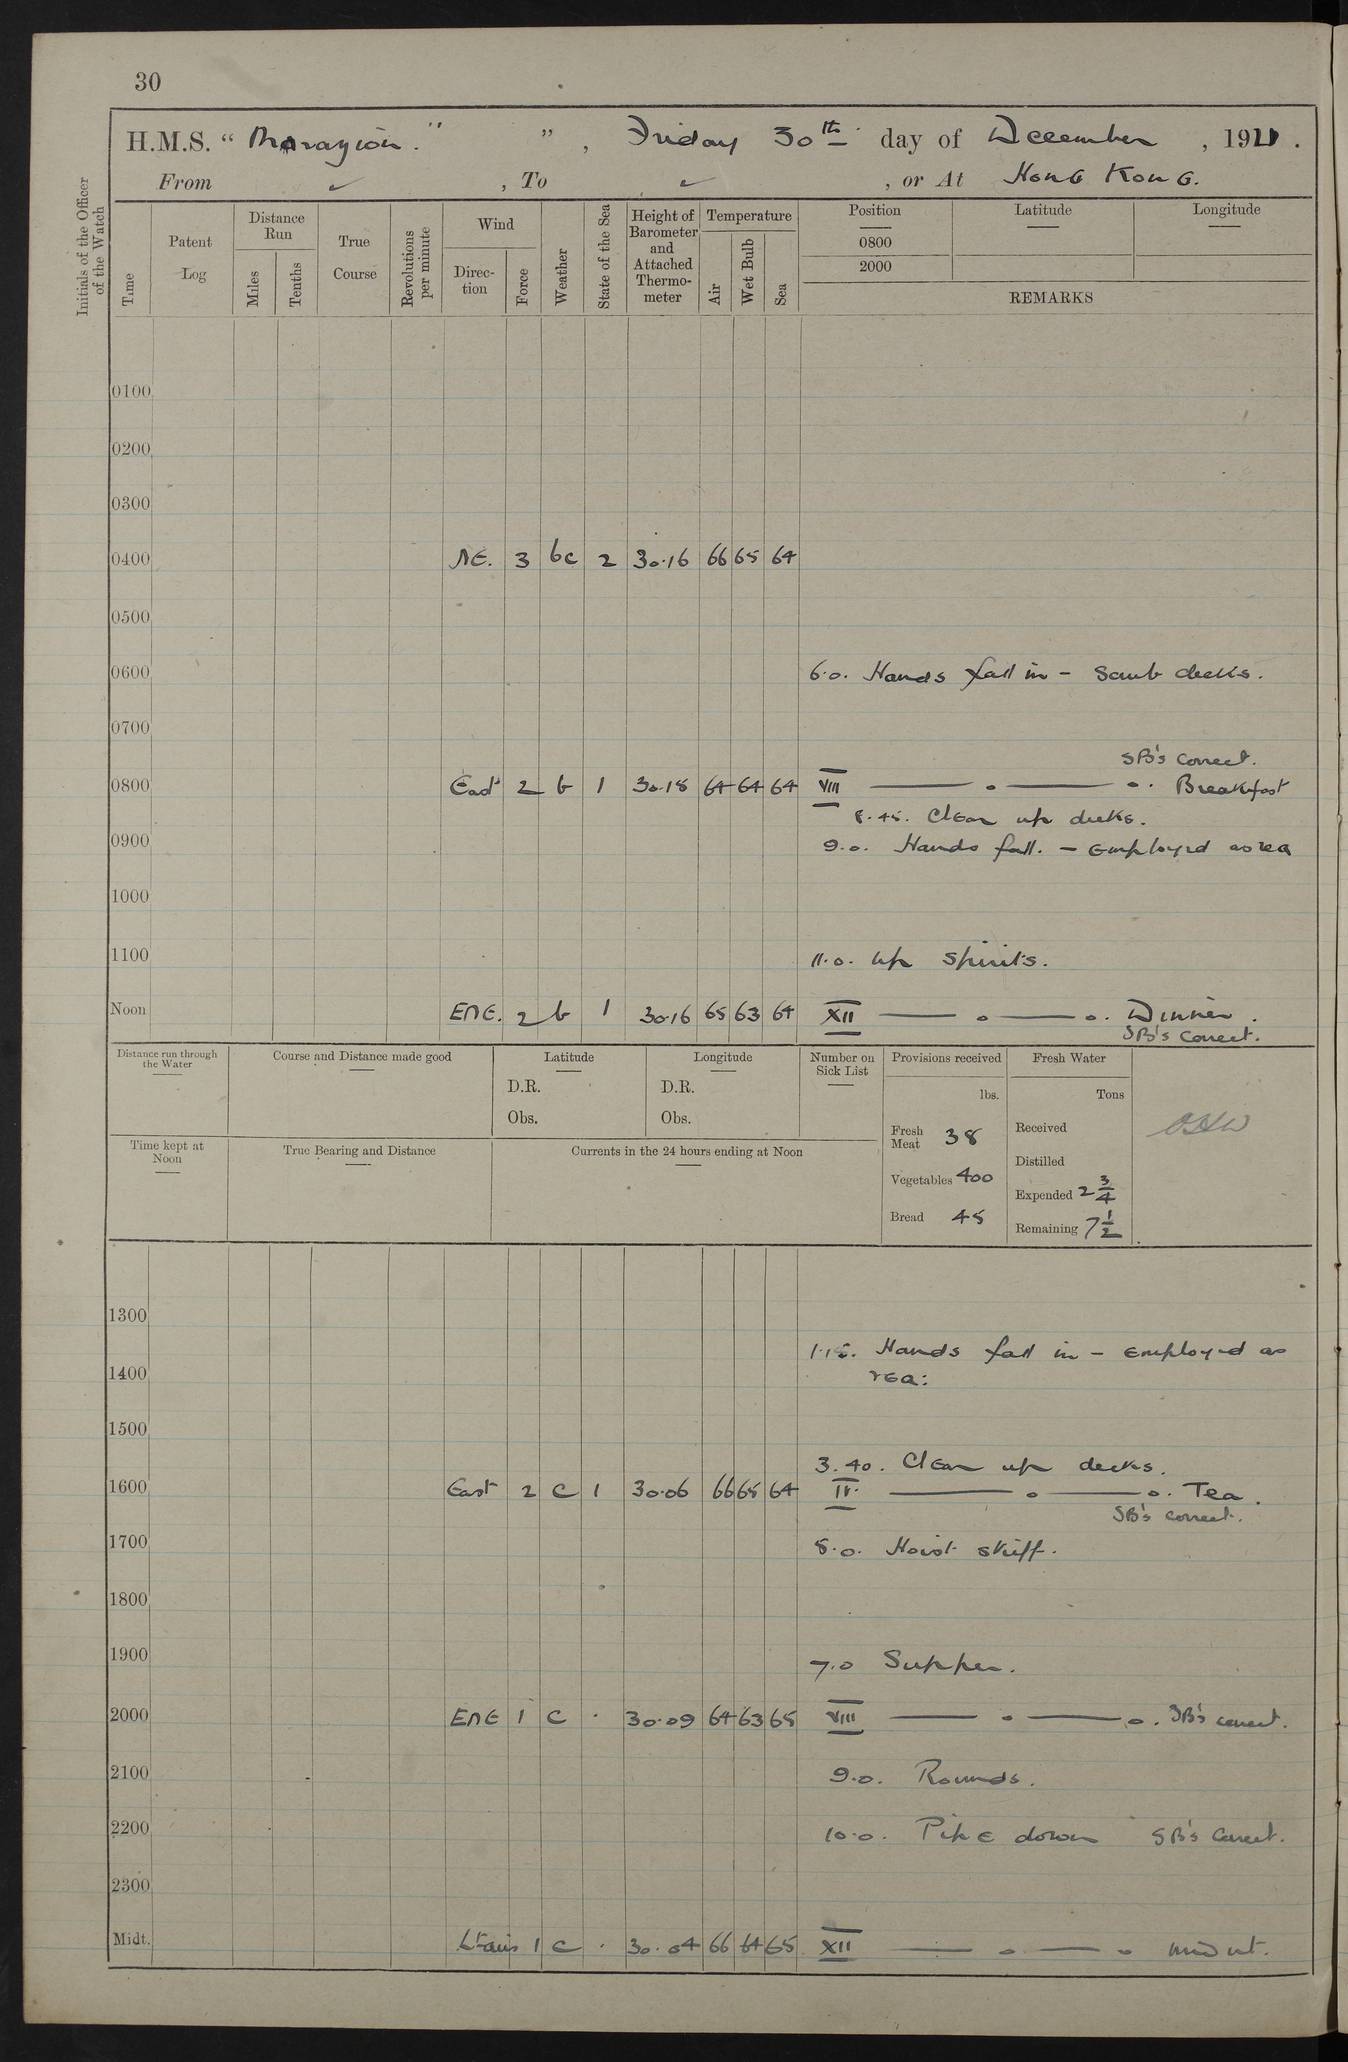 30
H.M.S. " Marazion. " ", Friday 30th day of December, 1921.
From ✓, To ✓, or At Hong Kong.
Initials of the Officer of the Watch
Time
Patent Log
Distance Run
Miles
Tenths
True Course
Revolutions per minute
Wind
Direc-tion
Force
Weather
State of the Sea
Height of Barometer and Attached Thermo-meter
Temperature
Air
Wet Bulb
Sea
Position
Latitude
Longitude
0800
2000
REMARKS
0100
0200
0300
0400 NE. 3 bc 2 30.16 66 65 64
0500
0600 6.0. Hands fall in - Scrub decks.
0700
SB's correct.
0800 East 2 b 1 30.18 64 64 64 VIII —— o —— o. Breakfast
8.45. Clear up decks.
0900 9.0. Hands fall. - Employed as req
1000
1100 11.0. Up Spirits.
Noon ENE. 2 b 1 30.16 65 63 64 XII —— o —— o. Dinner.
SB's Correct.
Distance run through the Water
Course and Distance made good
Latitude
D.R.
Obs.
Longitude
D.R.
Obs.
Number on Sick List
Provisions received
lbs.
Fresh Meat 38
Vegetables 400
Bread 45
Fresh Water
Tons
Received
Distilled
Expended 2 3/4
Remaining 7 1/2
Time kept at Noon
True Bearing and Distance
Currents in the 24 hours ending at Noon
1300
1.15. Hands fall in - Employed as
1400 req:
1500
3.40. Clear up decks.
1600 East 2 c 1 30.06 66 65 64 IV. —— o —— o. Tea.
SB's correct.
1700 5.0. Hoist skiff.
1800
1900 7.0 Supper.
2000 ENE 1 c . 30.09 64 63 65 VIII —— o —— o. SB's correct.
2100 9.0. Rounds.
2200 10.0. Pipe down SB's Correct.
2300
Midt. Lt airs 1 c . 30.04 66 64 65 XII —— o —— o Midnt.